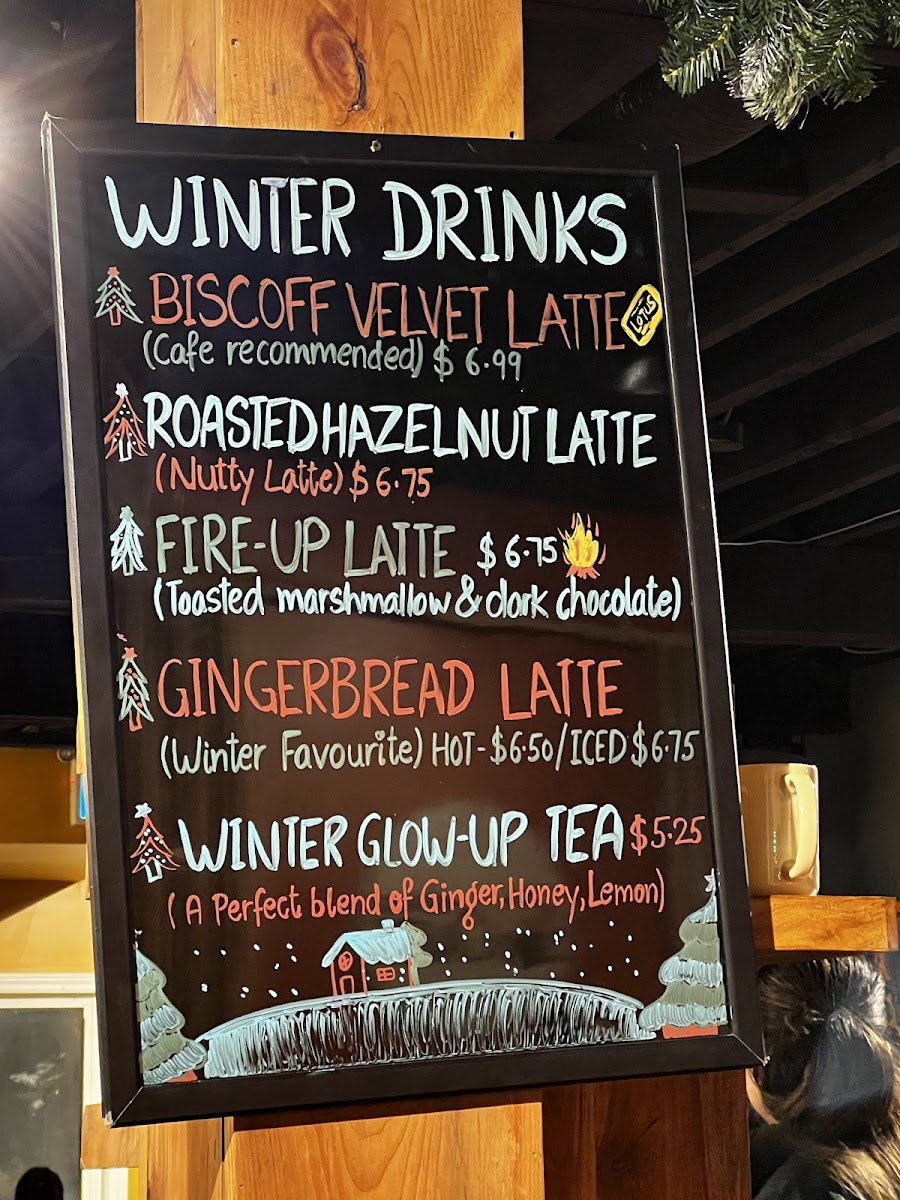 WINTER DRINKS
BISCOFF VELVET LATTE LOTUS
(Cafe recommended) $ 6.99
ROASTED HAZELNUT LATTE
(Nutty Latte) $ 6.75
FIRE-UP LATTE $ 6.75
(Toasted marshmallow & dark chocolate)
GINGERBREAD LATTE
(Winter Favourite) HOT - $6.50/ICED $6.75
WINTER GLOW-UP TEA $5.25
(A Perfect blend of Ginger, Honey, Lemon)